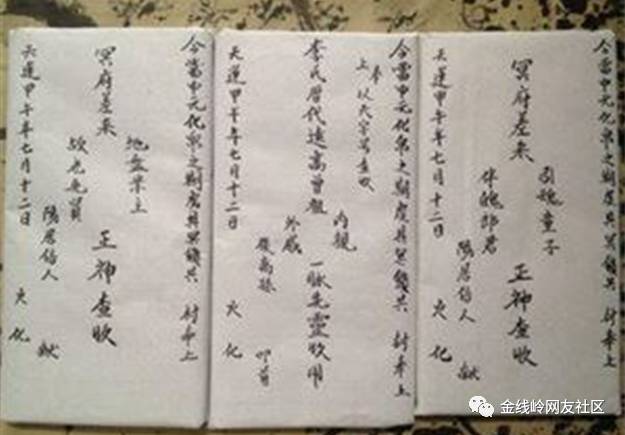 今當中元化帛之期虔具冥錢共 封奉上
引魂童子
冥府差來 正神查收
伴魄郎君
陽居信人 獻
天運甲午年七月十二日 火化
今當中元化帛之期虔具冥錢共 封奉上
上 以大字 查收
內親
李氏歷代遠高曾祖 一脉先靈收用
外戚
孫 叩首
天運甲午年七月十二日 火化
今當中元化帛之期虔具冥錢共 封奉上
地盤業主
冥府差來 正神查收
老先賢
陽居信人 獻
天運甲午年七月十二日 火化
金线岭网友社区